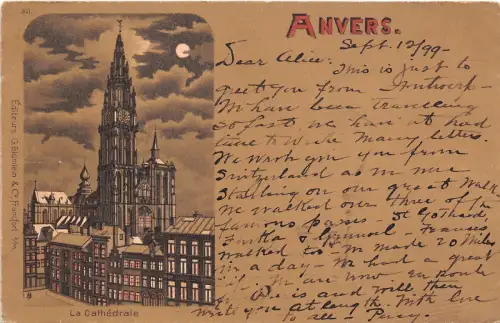 201.
ANVERS.
Sept. 12/99-
Dear Alice:
This is just to
greet you from Antwerp-
We have been travelling
so fast, we haven't had
time to write many letters.
We wrote you from
Switzerland as we were
starting on our great walk.
We walked over three of the
famous passes - St Gothard,
Furka & Grimsel - Frances
walked too - We made 20 miles
in a day - We had a great
We are now en route
Paris and will then
write you at length. With love
to all - Percy.
Editeurs G. Blümlein & Co. Francfort s/M.
La Cathédrale